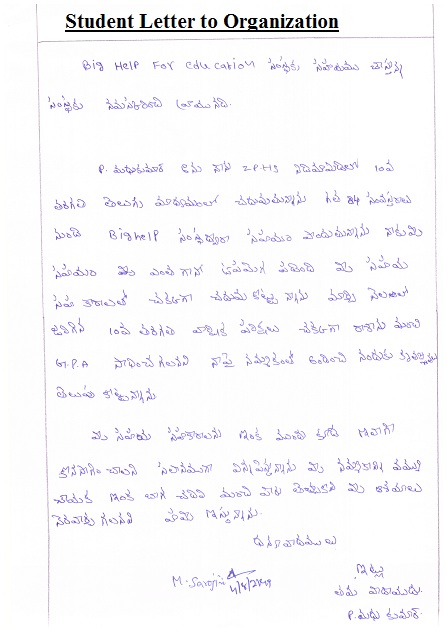 Student Letter to Organization
Big Help For Education సంస్థకు సహాయము చేస్తున్న
సంస్థకు నమస్కరించి వ్రాయునది.
P. మధుకుమార్ అను నేను Z.P.H.S లో 10వ
తరగతి తెలుగు మాధ్యమంలో చదువుతున్నాను గత సంవత్సరాలు
నుండి Bighelp సంస్థద్వారా సహాయం పొందుతున్నాను నాకు మీ
సహాయం ఎంత గానో ఉపయోగ పడింది మీ సహాయ
సహ కారాలతో చక్కగా చదువు కొన్నాను మార్చి నెలలో
జరిగిన 10వ తరగతి వార్షిక పరీక్షలు చక్కగా రాశాను మంచి
G.P.A సాధించ గలనని నాపై నమ్మకంతో అందించి నందుకు
తెలుపు కొట్టున్నాను
మీ సహాయ సహకారాలను ఇంక ముందు కూడ ఇలాగే
కొనసాగించాలని మీ
చేయక ఇంక బాగ చదివి మంచి పేరు తెచ్చుకొని మీ ఆశయాలు
నెరవేర్చు గలనని హామి ఇస్తున్నాను.
ధన్యావాదములు
ఇట్లు
తమ
P. మధు కుమార్.